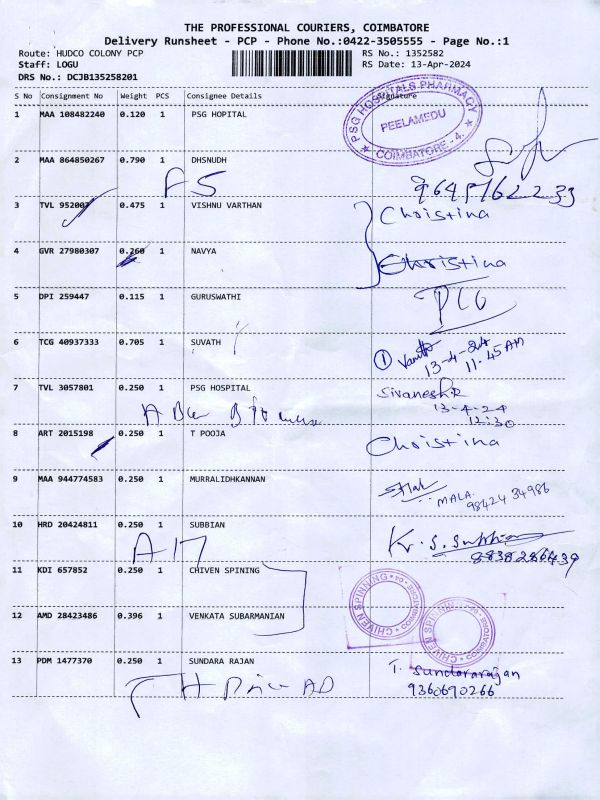 THE PROFESSIONAL COURIERS, COIMBATORE
Delivery Runsheet - PCP - Phone No.:0422-3505555 - Page No.:1
Route: HUDCO COLONY PCP RS No.: 1352582
Staff: LOGU RS Date: 13-Apr-2024
DRS No.: DCJB135258201
S No Consignment No Weight PCS Consignee Details Signature
1 MAA 108482240 0.120 1 PSG HOPITAL
PSG HOSPITALS PHARMACY
PEELAMEDU
COIMBATORE - 4.
2 MAA 864850267 0.790 1 DHSNUDH
3 TVL 952007 0.475 1 VISHNU VARTHAN Christina
4 GVR 27980307 0.260 1 NAVYA Christina
5 DPI 259447 0.115 1 GURUSWATHI
6 TCG 40937333 0.705 1 SUVATH
13-4-24
11.45 AM
7 TVL 3057801 0.250 1 PSG HOSPITAL
13-4-24
12:30
8 ART 2015198 0.250 1 T POOJA Christina
9 MAA 944774583 0.250 1 MURRALIDHKANNAN
MALA
98424 34986
10 HRD 20424811 0.250 1 SUBBIAN
A 17
11 KDI 657852 0.250 1 CHIVEN SPINING
CHIVEN SPINNING
12 AMD 28423486 0.396 1 VENKATA SUBARMANIAN
CHIVEN SPINNING
13 PDM 1477370 0.250 1 SUNDARA RAJAN T. Sundararajan
9360690266